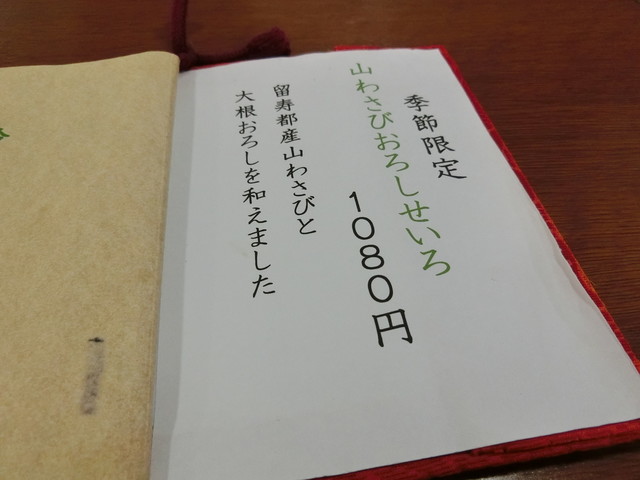 季節限定
山わさびおろしせいろ
1080円
留寿都産山わさびと
大根おろしを和えました